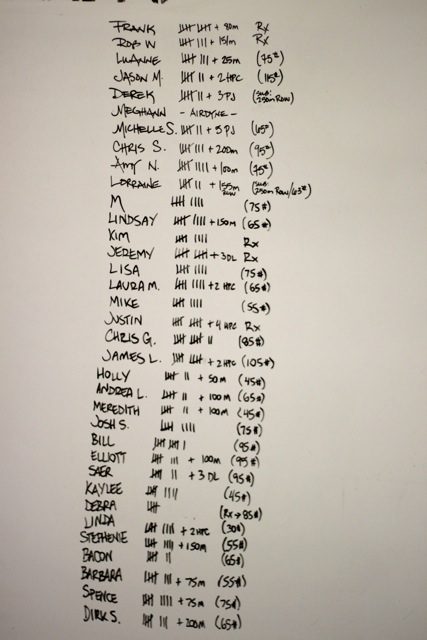 FRANK 𝍸 𝍸 + 80m Rx
ROB W 𝍸 III + 151m Rx
LUANNE 𝍸 III + 25m (75#)
JASON M. 𝍸 II + 2 HPC (115#)
DEREK 𝍸 II + 3 PJ (SUB: 250m ROW)
MEGHANN - AIRDYNE -
MICHELLE S. 𝍸 II + 5 PJ (65#)
CHRIS S. 𝍸 III + 200m (95#)
AMY N. 𝍸 IIII + 100m (75#)
LORRAINE 𝍸 II + 155m ROW (SUB: 250m ROW/63#)
M 𝍸 IIII (75#)
LINDSAY 𝍸 IIII + 150m (65#)
KIM 𝍸 IIII Rx
JEREMY 𝍸 𝍸 + 3 DL Rx
LISA 𝍸 IIII (75#)
LAURA M. 𝍸 IIII + 2 HPC (65#)
MIKE 𝍸 IIII (55#)
JUSTIN 𝍸 𝍸 + 4 HPC Rx
CHRIS G. 𝍸 𝍸 II (85#)
JAMES L. 𝍸 𝍸 + 2 HPC (105#)
HOLLY 𝍸 II + 50m (45#)
ANDREA L. 𝍸 II + 100m (65#)
MEREDITH 𝍸 II + 100m (45#)
JOSH S. 𝍸 IIII (75#)
BILL 𝍸 𝍸 I (95#)
ELLIOTT 𝍸 III + 100m (95#)
SAER 𝍸 II + 3 DL (95#)
KAYLEE 𝍸 IIII (45#)
DEBRA 𝍸 (Rx → 85#)
LINDA 𝍸 IIII + 2 HPC (30#)
STEPHENIE 𝍸 III + 150m (55#)
BACON 𝍸 II (65#)
BARBARA 𝍸 III + 75m (55#)
SPENCE 𝍸 IIII + 75m (75#)
DIRK S. 𝍸 III + 200m (65#)